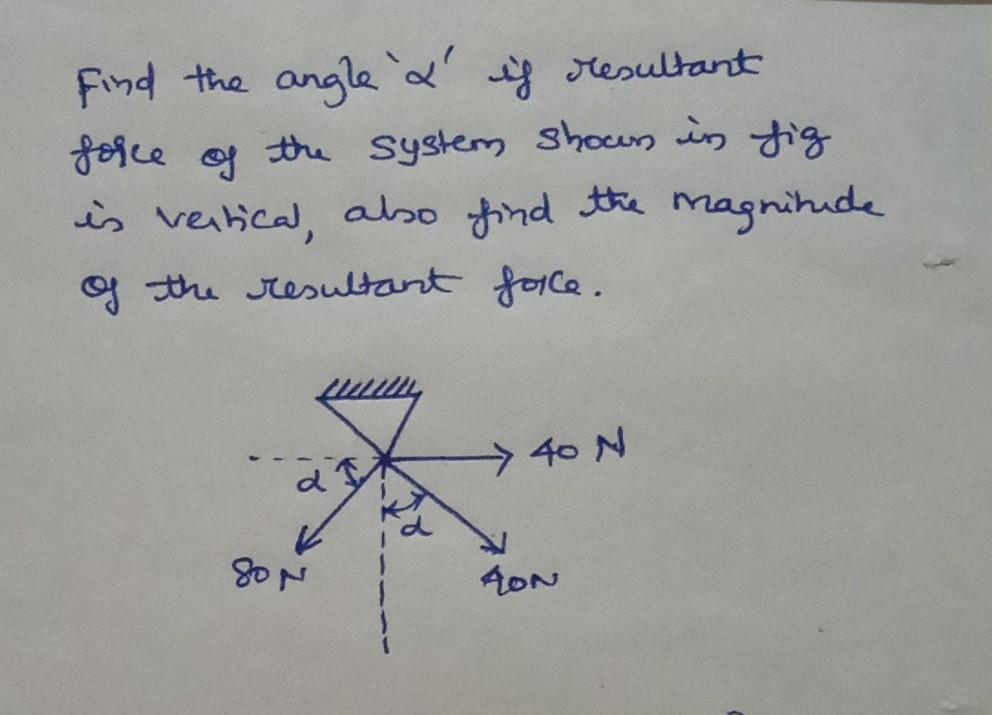 Find the angle 'α' if resultant
force of the system shown in fig
is vertical, also find the magnitude
of the resultant force.
40 N
α
α
80 N
40N